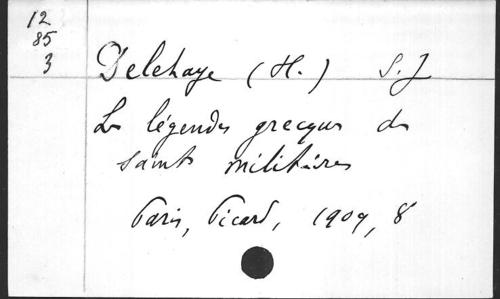 12
85
3
Delehaye (H.) S.J
Les légendes grecques des
saints militaires
Paris, Picard, 1909, 8°